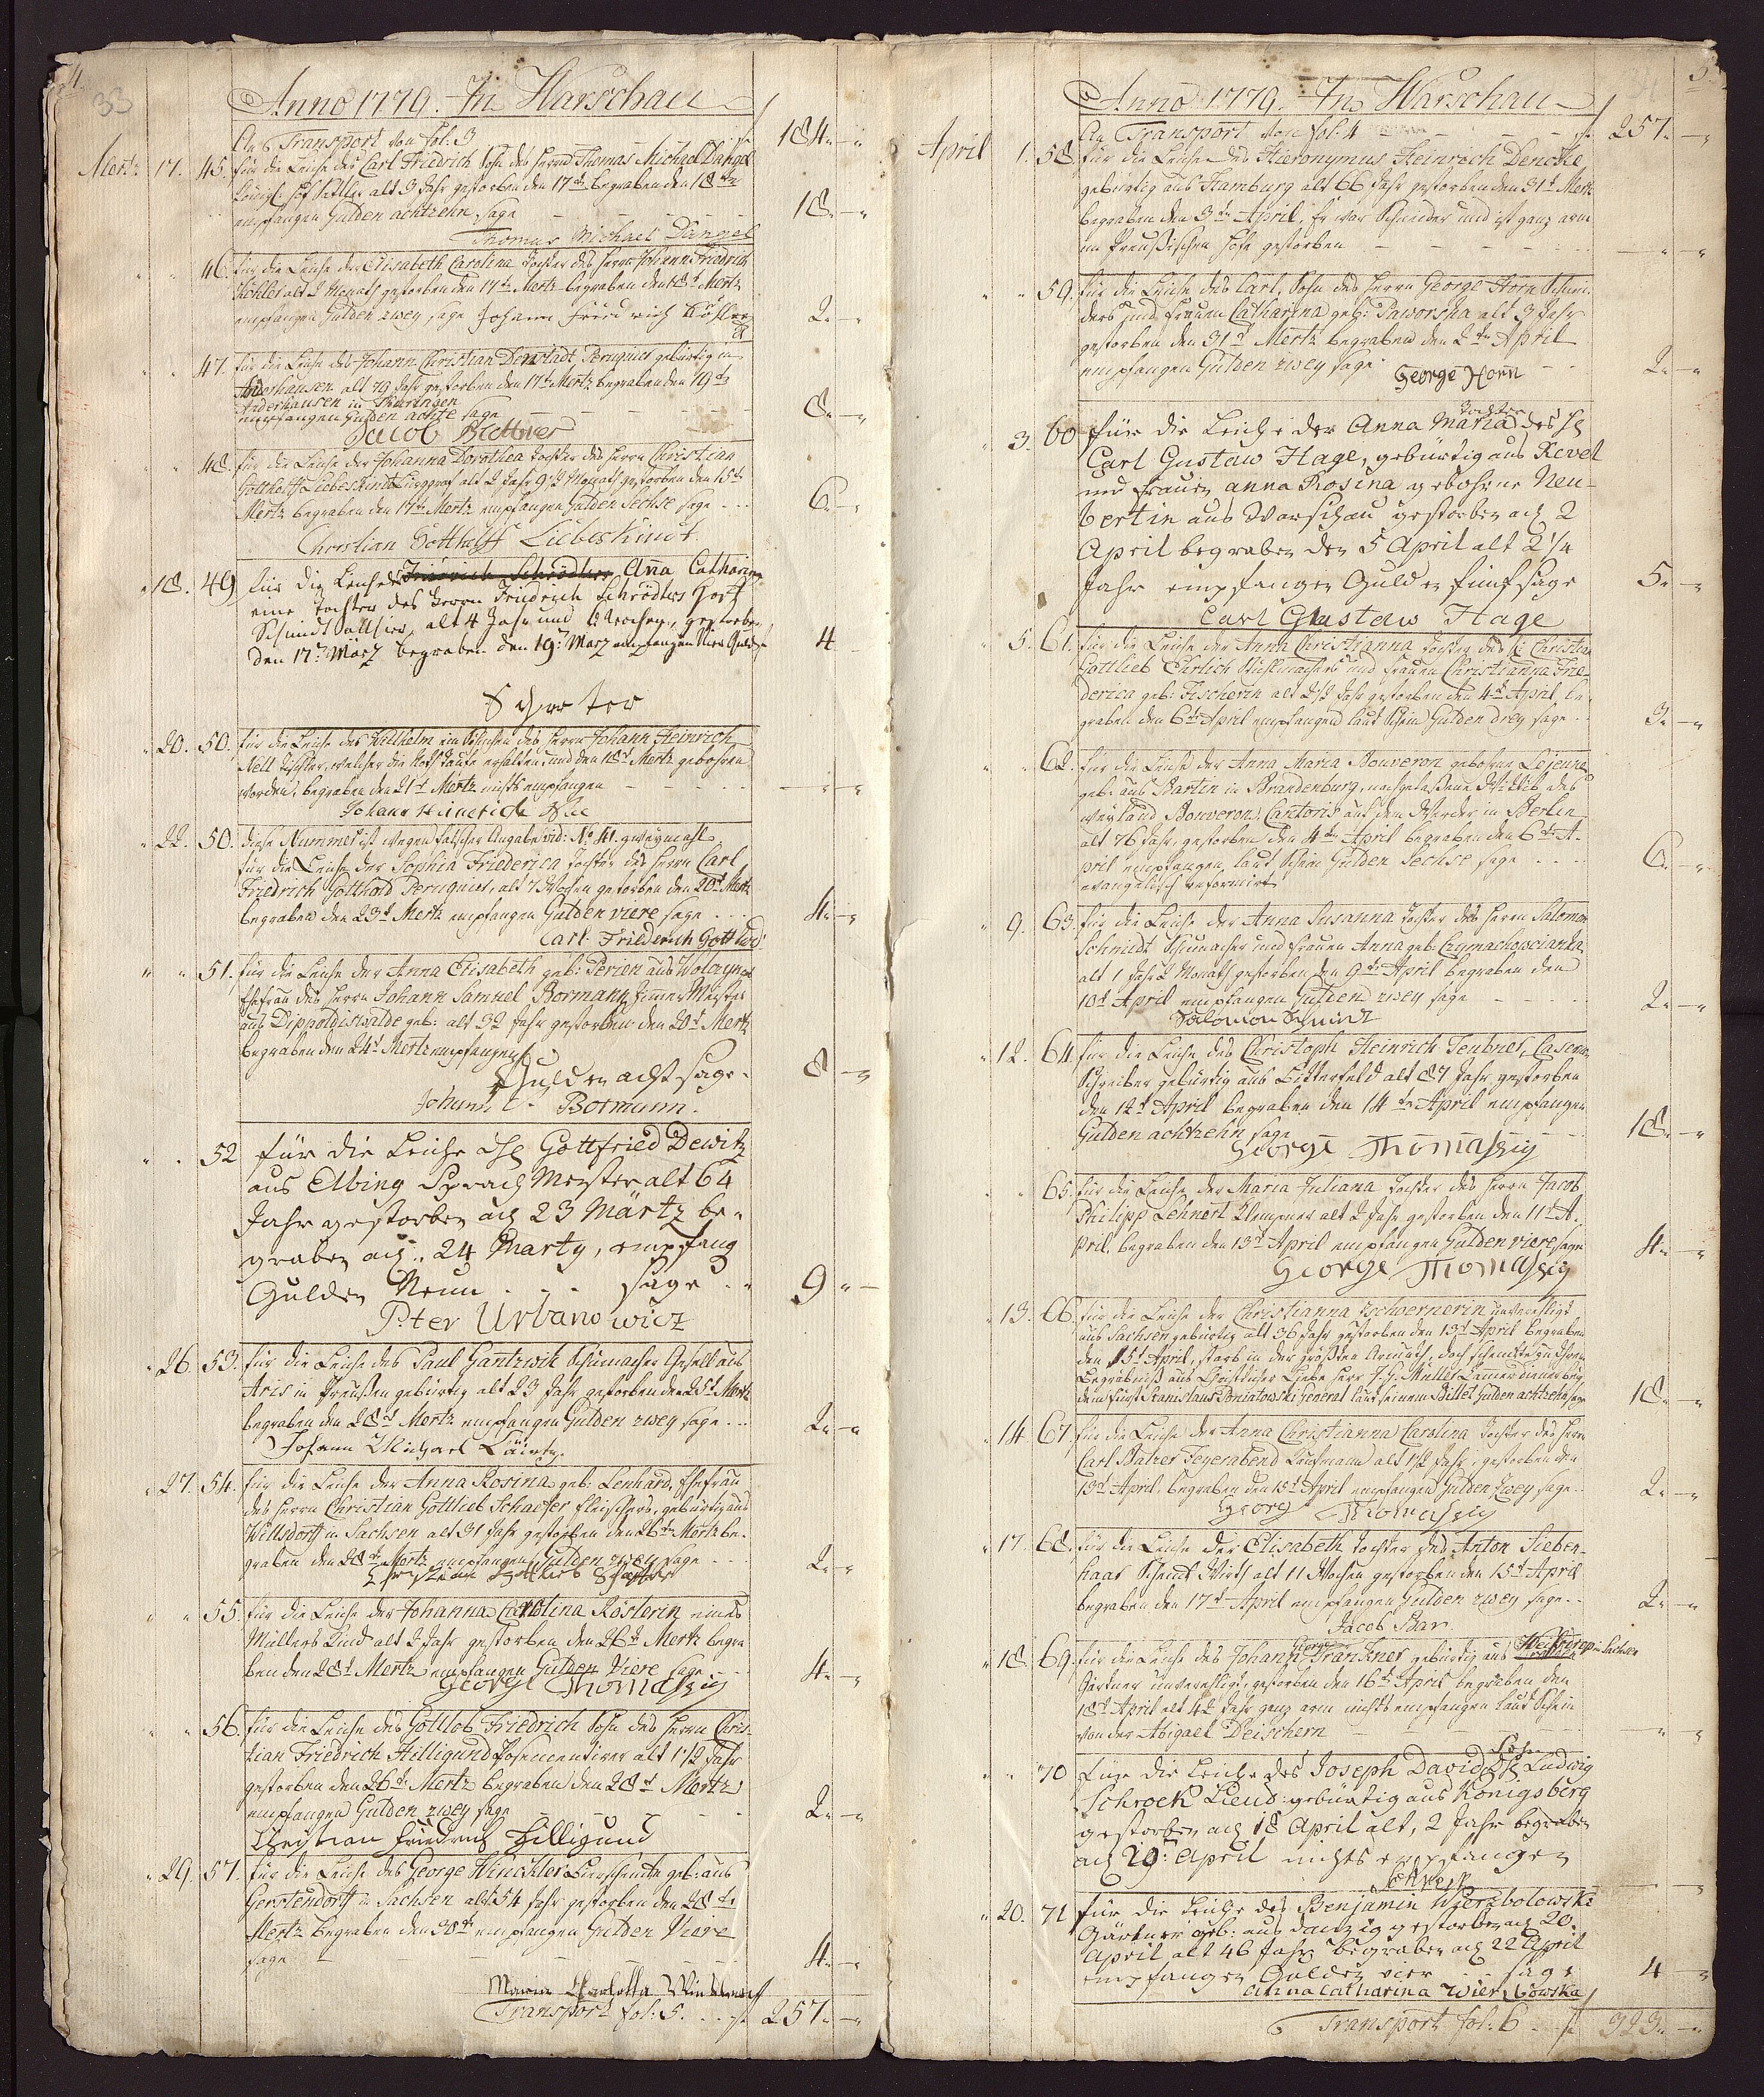 4.
33
Anno 1779. In Warschau
An Transport von fol: 3 184.-"
Mertz 17. 45. für die Leiche des Carl Friedrich Sohn des Herrn Thomas Michael Dangel
Königl: Hof Sattler alt 3 Jahr gestorben den 17t begraben den 18ten
empfangen Gulden achtzehn sage 18.-"
Thomas Michael Dangel
" " 46. für die Leiche der Elisabeth Carolina Tochter des Herrn Johann Friedrich
Köhler alt 2 Monath gestorben den 17ten Mertz begraben den 18t Mertz
empfangen Gulden zwey, sage Johann Friedrich Köhler 2.-"
" " 47. für die Leiche des Johann Christian Denstadt Peruquier gebürtig in
Anderhausen alt 79 Jahr gestorben den 17t Mertz begraben den 19t
Anderhausen in Thüringen
empfangen Gulden achte sage 8.-"
Jacob Bruttner
" " 48. für die Leiche der Johanna Dorothea Tochter des Herrn Christian
Gotthelff Liebeskindt alt 2 Jahr 9 1/2 Monath gestorben den 15t
Mertz begraben den 17ten Mertz empfangen Gulden Sechse sage 6.-"
Christian Gotthelff Liebeskindt.
" 18. 49 für die Leiche Friedrich Schrödters Ana Catharina
eine Tochter des Herrn Friedrich Schrödters
alt 4 Jahr und Wochen, gestorben
den 17t März begraben den 19t März empfangen Vier Gulden 4
Schroter
" 20. 50. für die Leiche des Willhelm ein Söhnchen des Herrn Johann Heinrich
Nell Tischler, welcher die Noth Taufe erhalten und den 18t Mertz gebohren
worden, begraben den 21t Mertz nichts empfangen -"-"
Johann Heinrich Nell
" 22. 50. diese Nummer ist wegen falscher Angabe vid: No 41. zweymahl
für die Leiche der Sophia Friederica Tochter des Herrn Carl
Friedrich Gotthold Peruquier, alt 7 Wochen gestorben den 20t Mertz
begraben den 23t Mertz empfangen Gulden viere sage 4.-"
Carl Friederich Gotthold
" " 51. für die Leiche der Anna Elisabeth geb: Perien aus Wolczyn
Ehefrau des Herrn Johann Samuel Bormann Zimmer Meister
aus Dippoldiswalde geb: alt 32 Jahr gestorben den 20t Mertz
begraben den 24t Mertz empfangen
Gulden acht sage. 8 -"
Johann S. Bormann.
" " 52 für die Leiche H Gottfried Dewitz
aus Elbing Sprach Meister alt 64
Jahr gestorben d 23 Märtz be-
graben d. 24 Marty, empfang
Gulden Neun sage 9 "-
Peter Urbanowicz
" 26. 53. für die Leiche des Paul Gantzwik Schumacher Gesell aus
Aris in Preußen gebürtig alt 23 Jahr gestorben den 25t Mertz
begraben den 28t Mertz empfangen Gulden zwey sage 2.-"
Johann Michael
" 27. 54. für die Leiche der Anna Rosina geb: Lenhard, Ehefrau
des Herrn Christian Gottlieb Schaefer Fleischers, gebürtig aus
Willsdorff in Sachsen alt 31 Jahr gestorben den 26ten Mertz be-
graben den 28t Mertz empfangen Gulden zwey sage 2.-"
Christian Gottlieb Schäfer
" " 55. für die Leiche der Johanna Carolina Rösterin eines
Müllers Kind alt 2 Jahr gestorben den 26t Mertz begra
ben den 28t Mertz empfangen Gulden Viere sage 4.-"
George Thomaßzig
" " 56. für die Leiche des Gottlob Friedrich Sohn des Herrn Chris-
tian Friedrich Hilligund Posementirer alt 1 1/2 Jahr
gestorben den 26t Mertz begraben den 28t Mertz
empfangen Gulden zwey sage 2.-"
Christian Friedrich Hilligund
" 29. 57. für die Leiche des George Winckler Bierschenke geb: aus
Gerstendorff in Sachsen alt 54 Jahr gestorben den 28t
Mertz begraben den 30t empfangen Gulden Viere
sage 4.-"
Maria Charlotta Wincklern
Transport fol: 5. 257.-"
5.
Anno 1779. In Warschau
An Transport von fol: 4 257.-"
April 1. 58. für die Leiche des Hieronymus Heinrich Dencke,
gebürtig aus Hamburg alt 66 Jahr gestorben den 31t Mertz
begraben den 3ten April, Er war Schneider und ist ganz arm
im Preußischen Hofe gestorben -"-"
" " 59. für die Leiche des Carl, Sohn des Herrn George Horn Schnei-
ders und Frauen Catharina geb: Paworska alt 3 Jahr
gestorben den 31t Mertz begraben den 2ten April
empfangen Gulden zwey sage 2.-"
George Horn
" 3. 60 für die Leiche der Anna Maria Tochter des H
Carl Gustaw Hage, gebürtig aus Revel
und Frauen Anna Rosina gebohrne Neu-
bertin aus Warschau gestorben d 2
April begraben den 5 April alt 2 1/4
Jahr empfangen Gulden fünf sage 5.-"
Carl Gustaw Hage
" 5. 61. für die Leiche der Anna Christianna Tochter des H: Christian
Gottlieb Ehrlich Stuhlmachers und Frauen Christianna Frie-
derica geb: Fischerin alt 2 1/2 Jahr gestorben den 4t April be-
graben den 6t April empfangen laut Schein Gulden drey sage 3.-"
" " 62. für die Leiche der Anna Maria Bouveron gebohrne Lejeune
geb: aus Bartin in Brandenburg, nachgelaßene Wittib des
weyland Bouveron, Cantoris auf dem Werder in Berlin
alt 76 Jahr, gestorben den 4ten April begraben den 6t A-
pril empfangen laut Schein Gulden Sechse sage 6.-"
evangelisch reformirt
" 9. 63. für die Leiche der Anna Susanna Tochter des Herrn Salomon
Schmidt Schumacher und Frauen Anna geb: Czymachowscianka
alt 1 Jahr 2 Monath gestorben den 9t April begraben den
10t April empfangen Gulden zwey sage 2.-"
Salomon Schmidt
" 12. 64. für die Leiche des Christoph Heinrich Teubner,
Schreiber gebürtig aus Bitterfeld alt 87 Jahr gestorben
den 12t April begraben den 14ten April empfangen
Gulden achtzehn sage 18.-"
George Thomaßzig
" " 65. für die Leiche der Maria Juliana Tochter des Herrn Jacob
Philipp Lehnert Klempner alt 2 Jahr gestorben den 11t A-
pril, begraben den 13t April empfangen Gulden viere sage 4.-"
George Thomaßzig
" 13. 66. für die Leiche der Christianna Tschoernerin unverehligt
aus Sachsen gebürtig alt 36 Jahr gestorben den 13t April begraben
den 15t April, starb in der größten Armuth, doch schenckte zu ihrem
Begräbniß aus Christlicher Liebe Herr J. G. Müller Cammerdiener bey
dem Fürst Stanislaus Poniatowski General laut seinem Billet Gulden achtzehn sage 18.-"
" 14. 67. für die Leiche der Anna Christianna Carolina Tochter des Herrn
Carl Balzer Feyerabend Kaufmann alt 1 1/2 Jahr, gestorben den
13t April, begraben den 15t April empfangen Gulden zwey sage 2.-"
Georg Thomaßzig
" 17. 68. für die Leiche der Elisabeth Tochter des Anton Sieben-
haar Schenck Wirth alt 11 Wochen gestorben den 15t April
begraben den 17t April empfangen Gulden zwey sage 2.-"
Jacob Bar
" 18. 69. für die Leiche des Johann George Tranckner gebürtig aus Weistdrop in Sachsen
Gärtner unverehligt, gestorben den 16t April begraben den
18t April alt 42 Jahr ganz arm nichts empfangen laut Schein
von der Abigael Deischern "-"
" " 70 für die Leiche des Joseph David Sohn H Ludwig
Schroek Lieud: gebürtig aus Königsberg
gestorben d 18 April alt, 2 Jahr begraben
d 19: April nichts empfangen
Schroek
" 20. 71 für die Leiche des Benjamin Wierzbolowski
Gärtner geb: aus Danzig gestorben d 20.
April alt 46 Jahr begraben d 22 April
empfangen Gulden vier sage 4 -"
Anna Catharina Wierzbowska
Transport fol: 6 323.-"